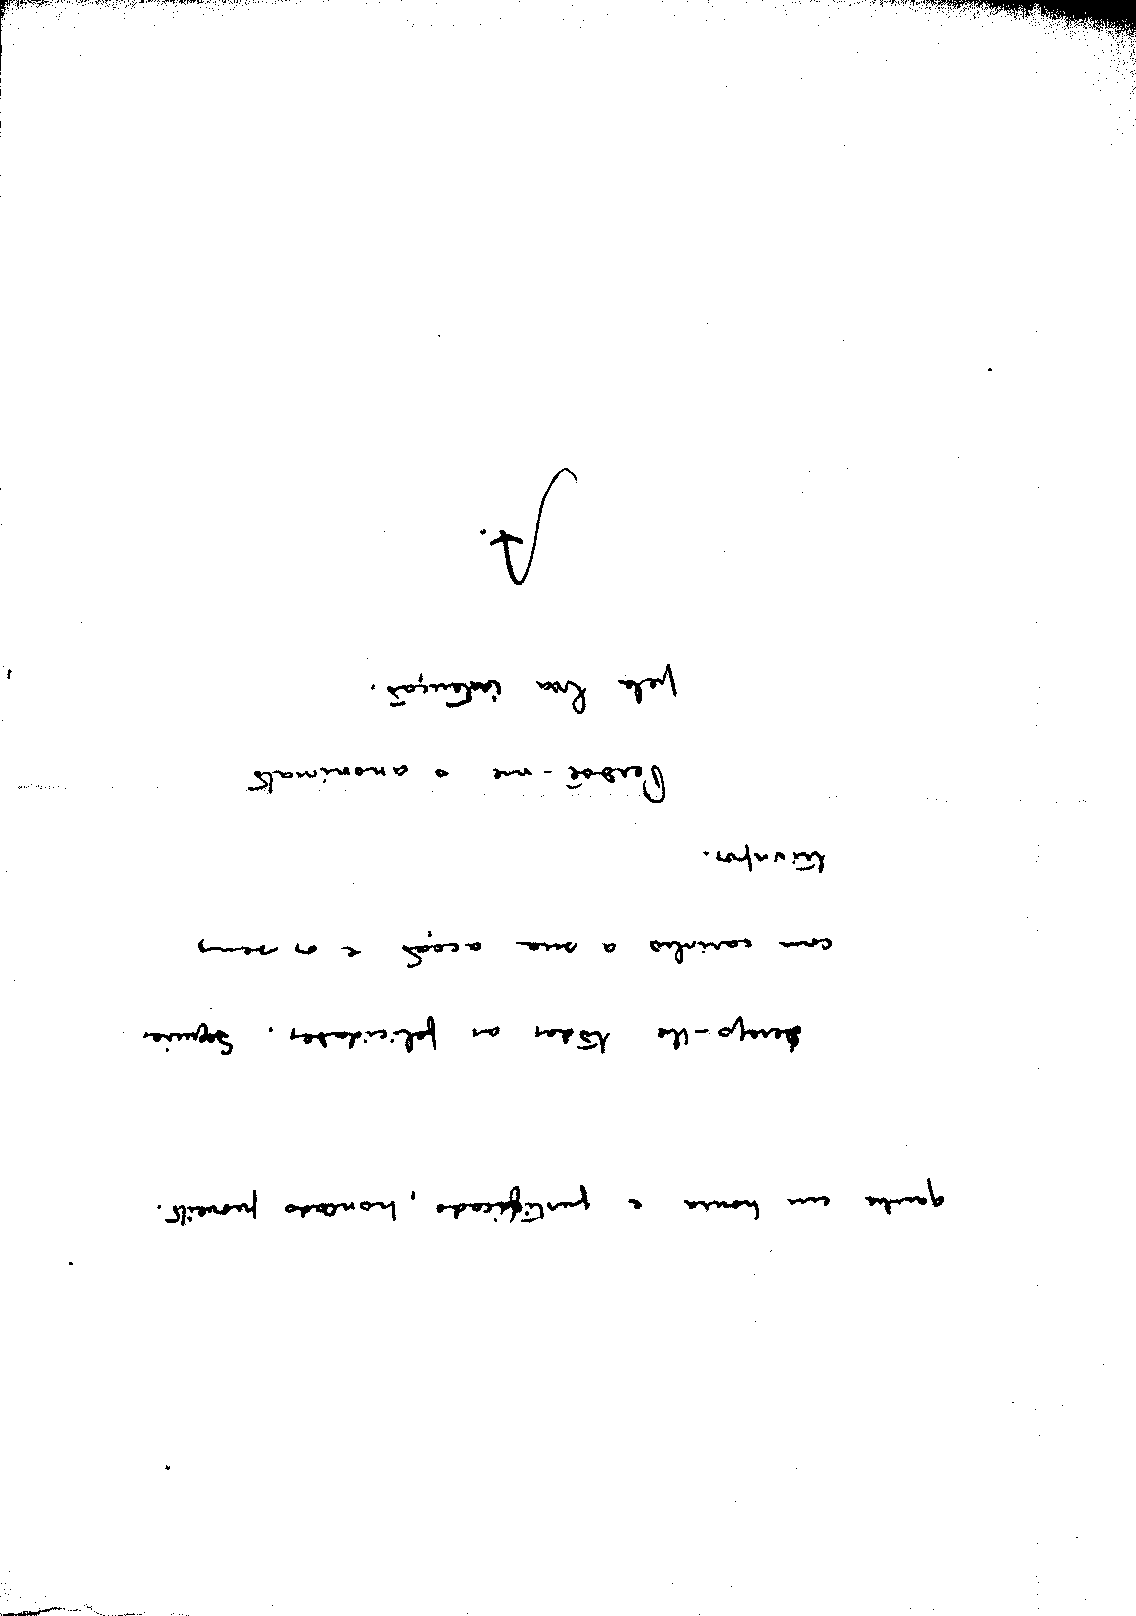 ganha em honra e justificado, honrado proveito.
Desejo-lhe tôdas as felicidades. Seguirei
com carinho a sua acção e os seus
triunfos.
Perdôe-me o anonimato
pela boa intenção.